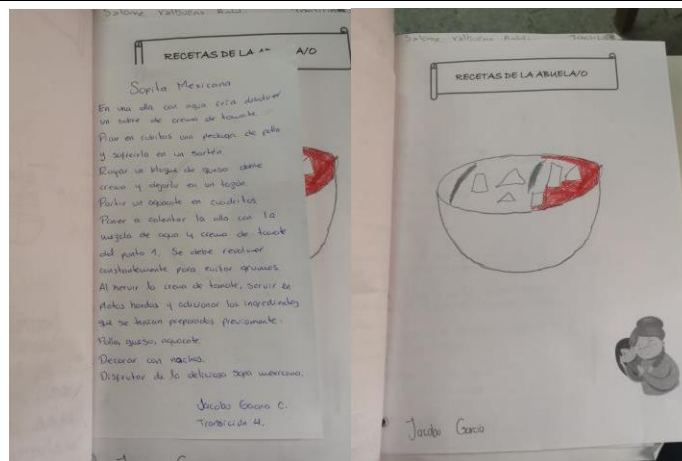 Salome Valbuena
RECETAS DE LA A/O
Sopita Mexicana
En una olla con agua fría disolver
un sobre de crema de tomate.
Picar en cubitos una pechuga de pollo
y sofreirla en un sartén.
Rayar un bloque de queso doble
crema y dejarlo en un tazón.
Partir un aguacate en cuadritos
Poner a calentar la olla con la
mezcla de agua y crema de tomate
del punto 1. Se debe revolver
constantemente para evitar grumos.
Al hervir la crema de tomate, servir en
platos hondos y adicionar los ingredientes
que se tenían preparados previamente:
Pollo, queso, aguacate.
Decorar con nachos.
Disfrutar de la deliciosa sopa mexicana.
Jacobo C.
Transición
Salome Valbuena
RECETAS DE LA ABUELA/O
Jacobo García